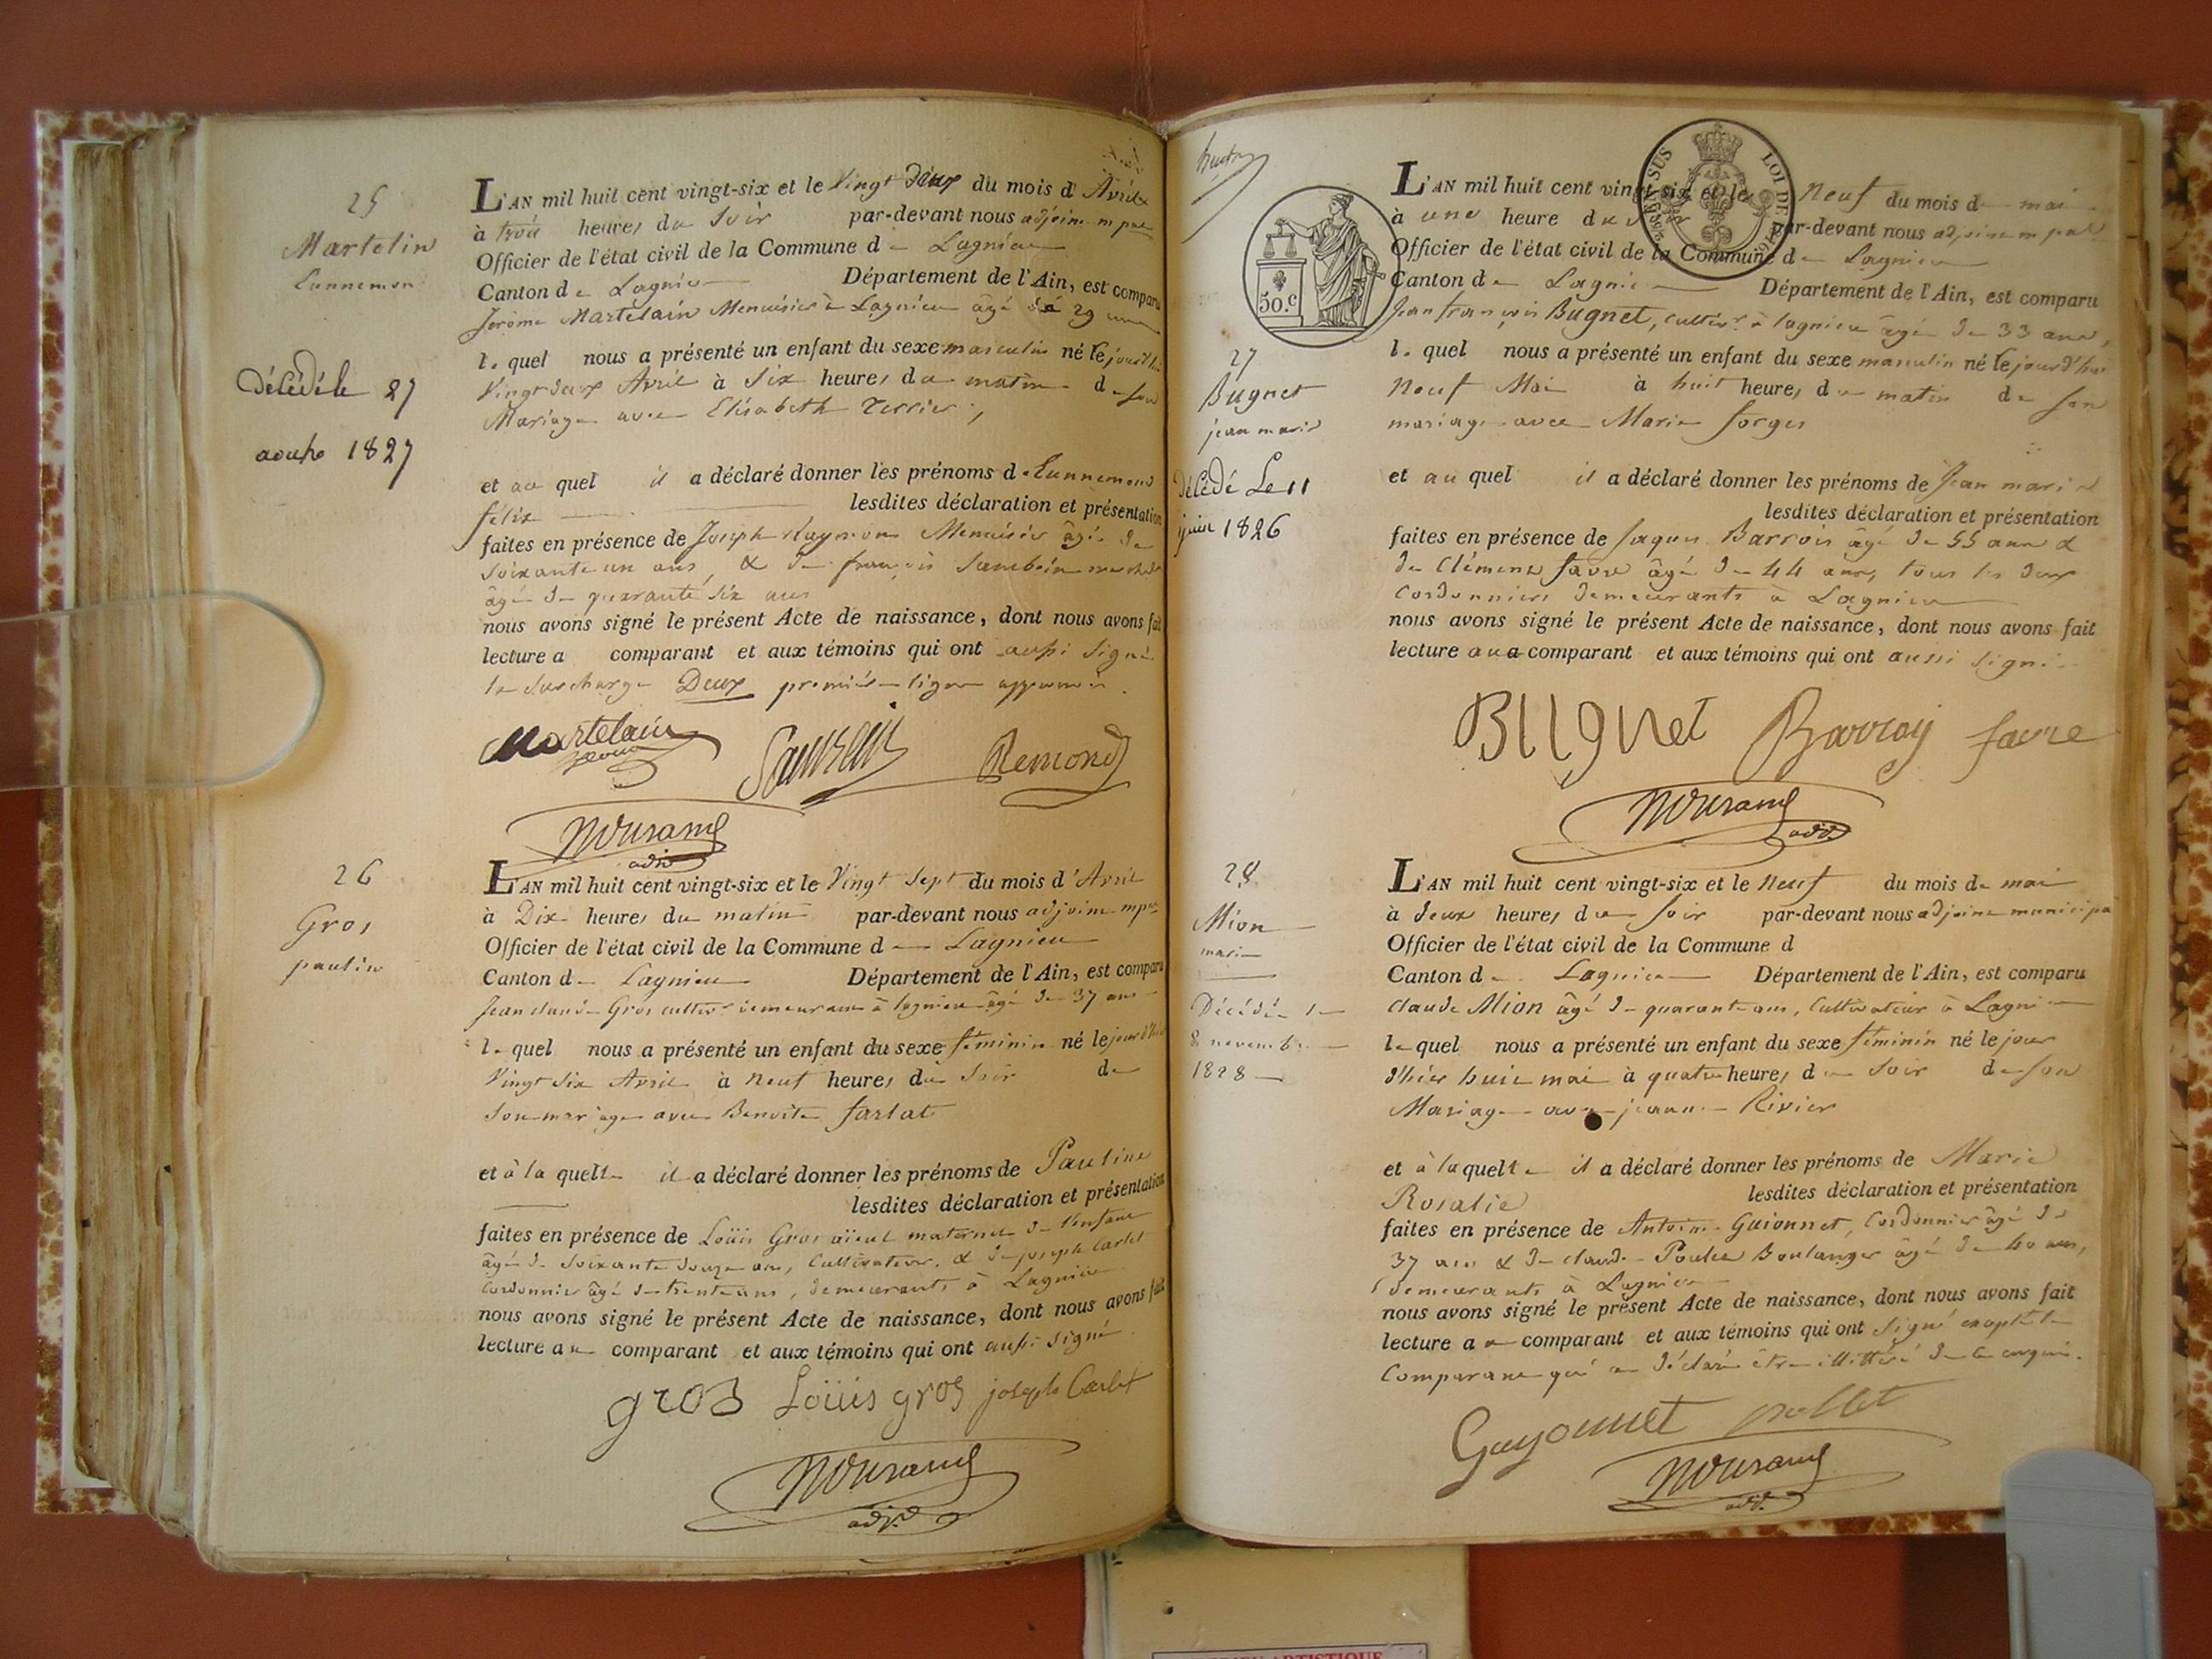 25
Martelin
Lunnemon
décédé le 27
aouste 1827
L'AN mil huit cent vingt-six et le Vingt Deux du mois d'Avril
à trois heures du Soir par-devant nous adjoint mpal
Officier de l'état civil de la Commune de Lagnieu
Canton de Lagnieu Département de l'Ain, est comparu
Jérôme Martelain Menuisier à Lagnieu âgé de 29 ans
lequel nous a présenté un enfant du sexe masculin né le jourd'hui
Vingt deux Avril à Six heures du matin de son
Mariage avec Elisabeth Terrier,
et au quel il a déclaré donner les prénoms de Lunnemond
félix lesdites déclaration et présentation
faites en présence de Joseph Raymon Menuisier âgé de
Soixante un ans, & de françois
âgé de quarante six ans
nous avons signé le présent Acte de naissance, dont nous avons fait
lecture a comparant et aux témoins qui ont aussi Signé
la Surcharge Deux première ligne approuvée.
Martelain
Remond
adj
26
Gros
paulin
L'AN mil huit cent vingt-six et le Vingt Sept du mois d'Avril
à Dix heures du matin par-devant nous adjoint mpal
Officier de l'état civil de la Commune de Lagnieu
Canton de Lagnieu Département de l'Ain, est comparu
Jean claude Gros cultivr demeurant à lagnieu âgé de 37 ans
lequel nous a présenté un enfant du sexe féminin né le jourd'hui
Vingt Six Avril à Neuf heures du Soir de
Son mariage avec Benoite farlat
et à la quelle il a déclaré donner les prénoms de Pauline
lesdites déclaration et présentation
faites en présence de Loüis Gros aïeul maternel de l'enfant
âgé de Soixante douze ans, Cultivateur, & de joseph Carlet
Cordonnier âgé de trente ans, demeurants à Lagnieu
nous avons signé le présent Acte de naissance, dont nous avons fait
lecture au comparant et aux témoins qui ont aussi signé
gros Loüis gros joseph Carlet
adj.
SUS
LOI DE
50.c
27
Bugnet
jean marie
décédé Le 11
juin 1826
L'AN mil huit cent vingt-six et le Neuf du mois de mai
à une heure du par-devant nous adjoint mpal
Officier de l'état civil de la Commune de Lagnieu
Canton de Lagnieu Département de l'Ain, est comparu
Jean françois Bugnet, cultivr à lagnieu âgé de 33 ans,
lequel nous a présenté un enfant du sexe masculin né le jourd'hui
Neuf Mai à huit heures du matin de son
mariage avec Marie forges
et au quel il a déclaré donner les prénoms de Jean marie
lesdites déclaration et présentation
faites en présence de jaques Barrois âgé de 55 ans &
de Clément favre âgé de 44 ans, tous les deux
Cordonniers demeurants à Lagnieu
nous avons signé le présent Acte de naissance, dont nous avons fait
lecture au comparant et aux témoins qui ont aussi signé
BUgnet Barroy favre
adj.
28
Mion
marie
Décédée le
8 novembre
1828
L'AN mil huit cent vingt-six et le Neuf du mois de mai
à deux heures du Soir par-devant nous adjoint municipal
Officier de l'état civil de la Commune d
Canton de Lagnieu Département de l'Ain, est comparu
Claude Mion âgé de quarante ans, Cultivateur à Lagnieu
lequel nous a présenté un enfant du sexe féminin né le jour
d'hier huit mai à quatre heures du Soir de son
Mariage avec jeanne Rivier
et à laquelle il a déclaré donner les prénoms de Marie
Rosalie lesdites déclaration et présentation
faites en présence de Antoine Guionnet, Cordonnier âgé de
37 ans & de claude Poulet Boulanger âgé de 40 ans,
demeurants à Lagnieu
nous avons signé le présent Acte de naissance, dont nous avons fait
lecture au comparant et aux témoins qui ont signé excepté le
Comparant qui a déclaré être illitéré de ce enquis.
Guyonnet pollet
adj.